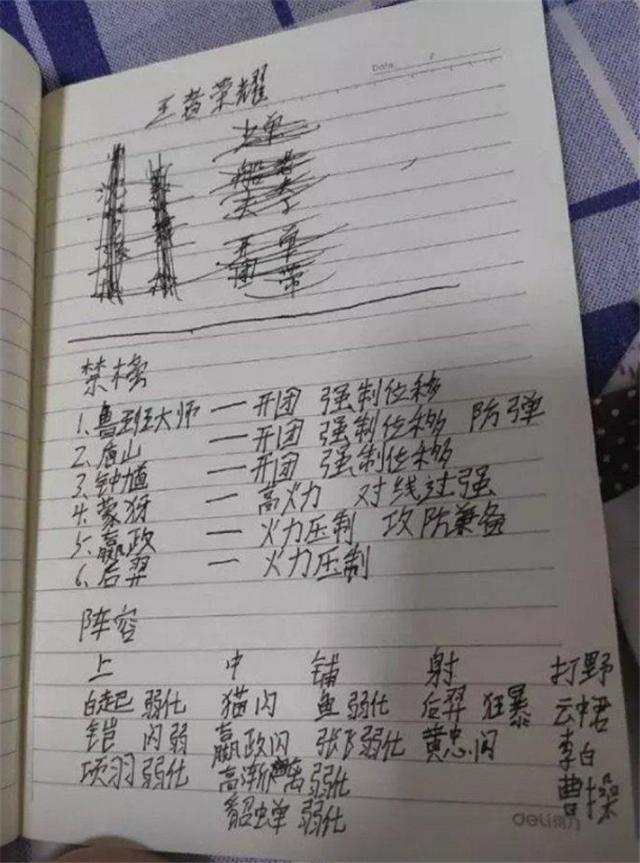 Date:
王者荣耀
上单
禁
1、鲁班大师 — 开团 强制位移
2、盾山 — 开团 强制位移 防弹
3、钟馗 — 开团 强制位移
4、蒙犽 — 高火力 对线过强
5、嬴政 — 火力压制 攻防兼备
6、后羿 — 火力压制
阵容
上 中 铺 射 打野
白起 弱化 猫闪 鱼 弱化 后羿 狂暴 云中君
铠 闪弱 嬴政闪 张飞弱化 黄忠闪 李白
项羽弱化 高渐离 弱化 曹操
貂蝉 弱化
deli得力